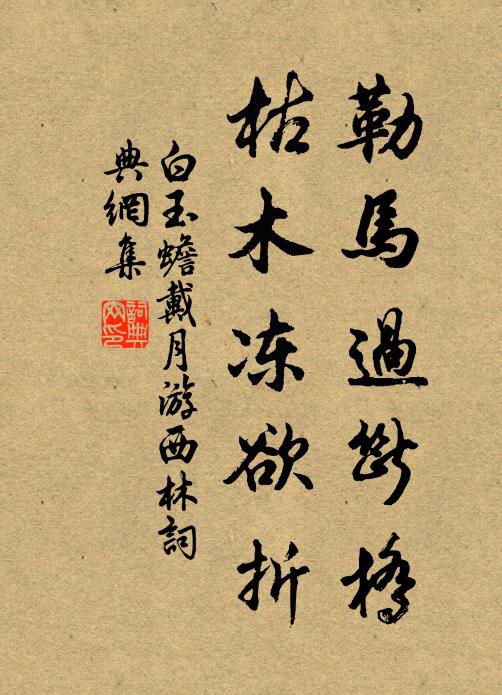 勒馬過斷橋
枯木冻欲折
白玉蟾戴月游西林詞
典網集
詞典
网印